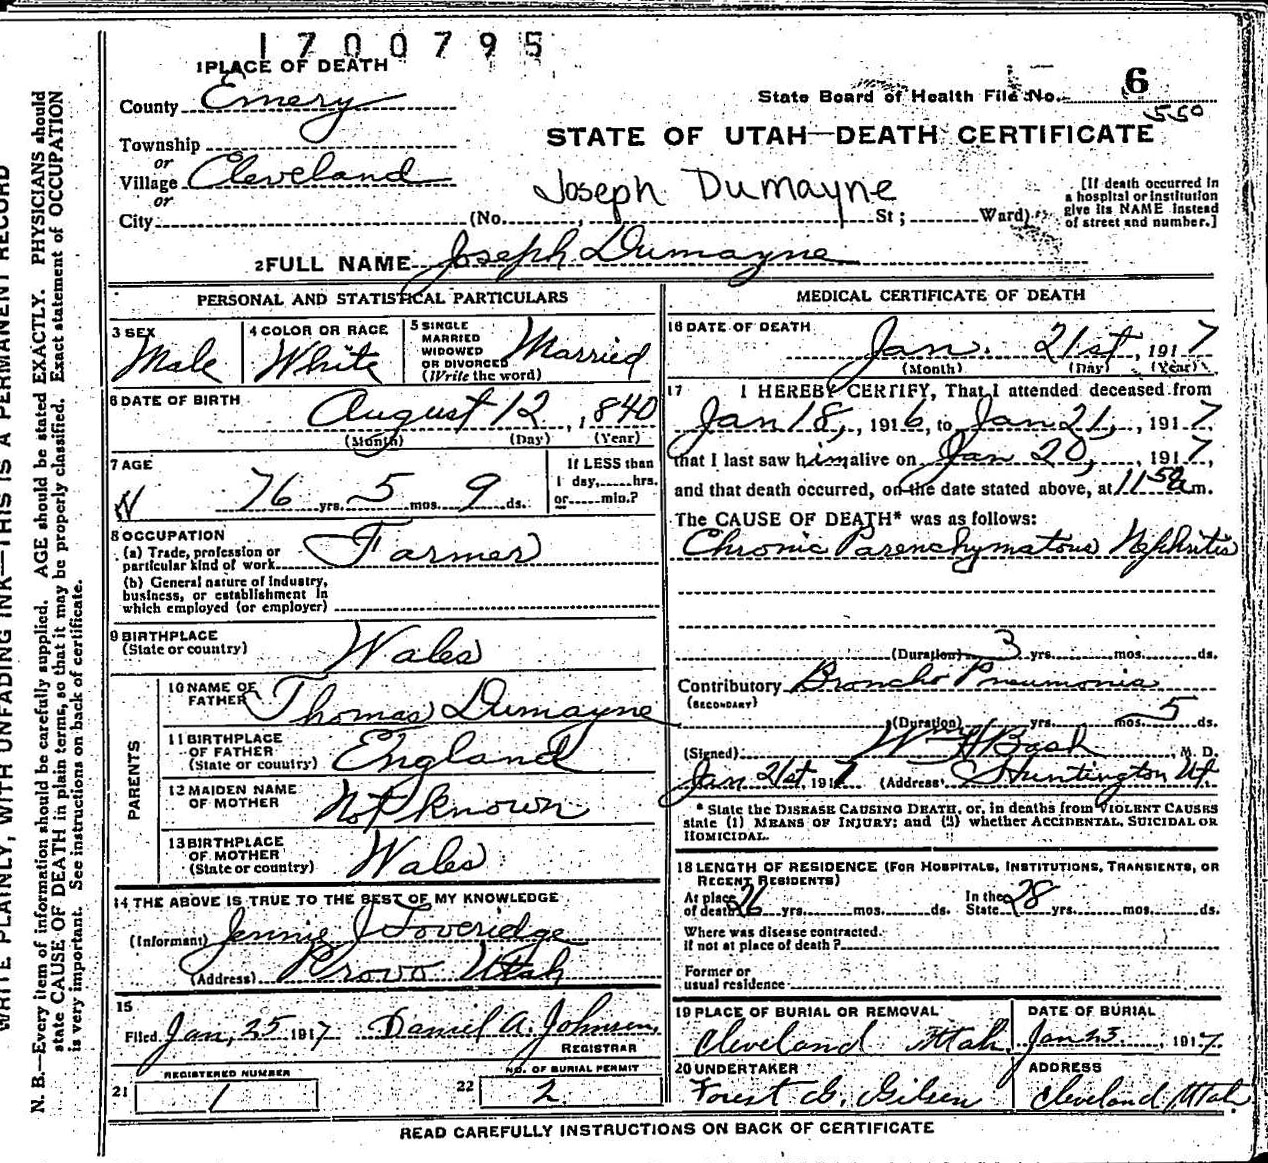 1700795
1 PLACE OF DEATH
County Emery
State Board of Health File No. 6
550
STATE OF UTAH—DEATH CERTIFICATE
Township
or
Village Cleveland
or
Joseph Dumayne
[If death occurred in a hospital or institution give its NAME instead of street and number.]
City (No. , St; Ward)
2 FULL NAME Joseph Dumayne
PERSONAL AND STATISTICAL PARTICULARS
3 SEX Male
4 COLOR OR RACE White
5 SINGLE MARRIED WIDOWED OR DIVORCED (Write the word) Married
6 DATE OF BIRTH August 12, 1840
(Month) (Day) (Year)
7 AGE 76 yrs. 5 mos. 9 ds.
If LESS than 1 day, hrs. or min.?
8 OCCUPATION
(a) Trade, profession or particular kind of work Farmer
(b) General nature of industry, business, or establishment in which employed (or employer)
9 BIRTHPLACE (State or country) Wales
PARENTS
10 NAME OF FATHER Thomas Dumayne
11 BIRTHPLACE OF FATHER (State or country) England
12 MAIDEN NAME OF MOTHER Not known
13 BIRTHPLACE OF MOTHER (State or country) Wales
14 THE ABOVE IS TRUE TO THE BEST OF MY KNOWLEDGE
(Informant) Jennie J Loveridge
(Address) Provo Utah
15
Filed Jan, 25 1917 Daniel A. Johnson,
REGISTRAR
21 REGISTERED NUMBER 1
22 NO. OF BURIAL PERMIT 2
MEDICAL CERTIFICATE OF DEATH
16 DATE OF DEATH
Jan. 21st, 1917
(Month) (Day) (Year)
17 I HEREBY CERTIFY, That I attended deceased from
Jan 18, 1916, to Jan 21, 1917,
that I last saw him alive on Jan 20, 1917,
and that death occurred, on the date stated above, at 11 50 a m.
The CAUSE OF DEATH* was as follows:
Chronic Parenchymatous Nephritis
(Duration) 3 yrs. mos. ds.
Contributory Broncho Pneumonia
(SECONDARY)
(Duration) yrs. mos. 5 ds.
(Signed) W H Bash, M. D.
Jan 21st, 1917 (Address) Huntington Ut.
* State the DISEASE CAUSING DEATH, or, in deaths from VIOLENT CAUSES
state (1) MEANS OF INJURY; and (2) whether ACCIDENTAL, SUICIDAL OR
HOMICIDAL.
18 LENGTH OF RESIDENCE (FOR HOSPITALS, INSTITUTIONS, TRANSIENTS, OR
RECENT RESIDENTS)
At place of death 26 yrs. mos. ds. In the State 28 yrs. mos. ds.
Where was disease contracted.
if not at place of death?
Former or
usual residence
19 PLACE OF BURIAL OR REMOVAL
Cleveland Utah.
DATE OF BURIAL
Jan 23, 1917.
20 UNDERTAKER
Forest G. Gilson
ADDRESS
Cleveland Utah
READ CAREFULLY INSTRUCTIONS ON BACK OF CERTIFICATE
WRITE PLAINLY, WITH UNFADING INK—THIS IS A PERMANENT RECORD
N. B.—Every item of information should be carefully supplied. AGE should be stated EXACTLY. PHYSICIANS should
state CAUSE OF DEATH in plain terms, so that it may be properly classified. Exact statement of OCCUPATION
is very important. See instructions on back of certificate.